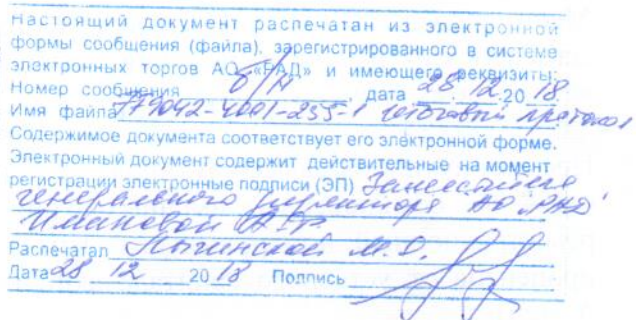 Настоящий документ распечатан из электронной
формы сообщения (файла), зарегистрированного в системе
электронных торгов АО «РАД» и имеющего реквизиты:
Номер сообщения б/н, дата 28.12.2018
Имя файла 779042-4001-255-1 итоговый протокол
Содержимое документа соответствует его электронной форме.
Электронный документ содержит действительные на момент
регистрации электронные подписи (ЭП) Заместителя
генерального директора АО "РАД"
Имановой
Распечатал М.О.
Дата 28 12 2018 Подпись